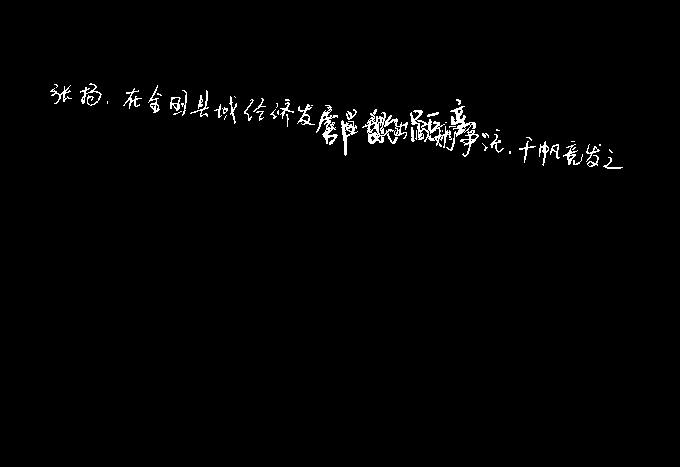 张扬.在全国县域经济发展争流.千帆竞发之